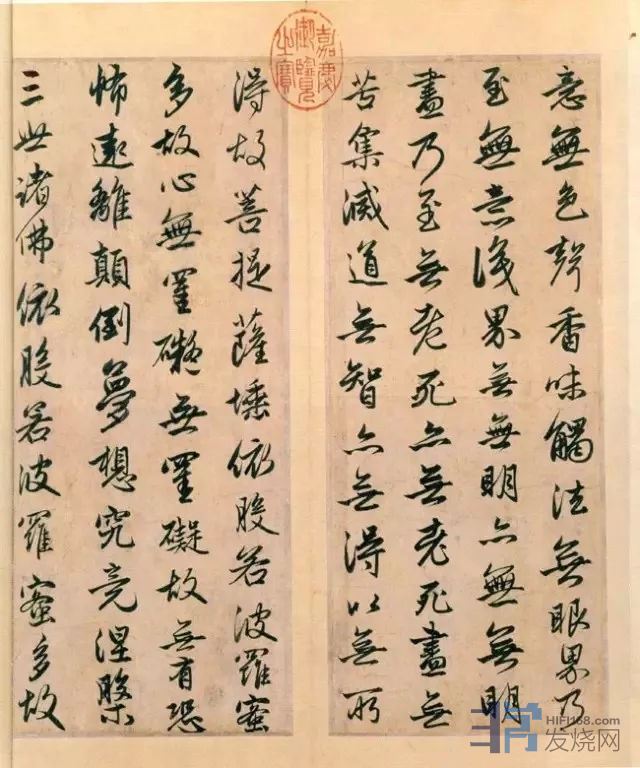 嘉慶
御覽
之寶
意無色聲香味觸法無眼界乃
至無意識界無無明亦無無明
盡乃至無老死亦無老死盡無
苦集滅道無智亦無得以無所
得故菩提薩埵依般若波羅蜜
多故心無罣礙無罣礙故無有恐
怖遠離顛倒夢想究竟涅槃
三世諸佛依般若波羅蜜多故
HIFI168.com
发烧网